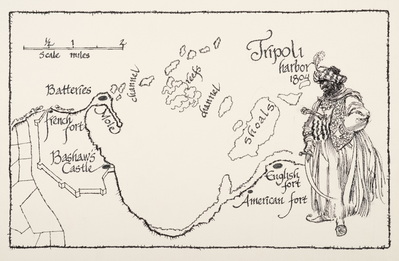 ½ 1 2
Scale miles
Tripoli
harbor
1804
channel
reefs
channel
Batteries
French
fort
Mole
shoals
Bashaw's
Castle
English
fort
American fort